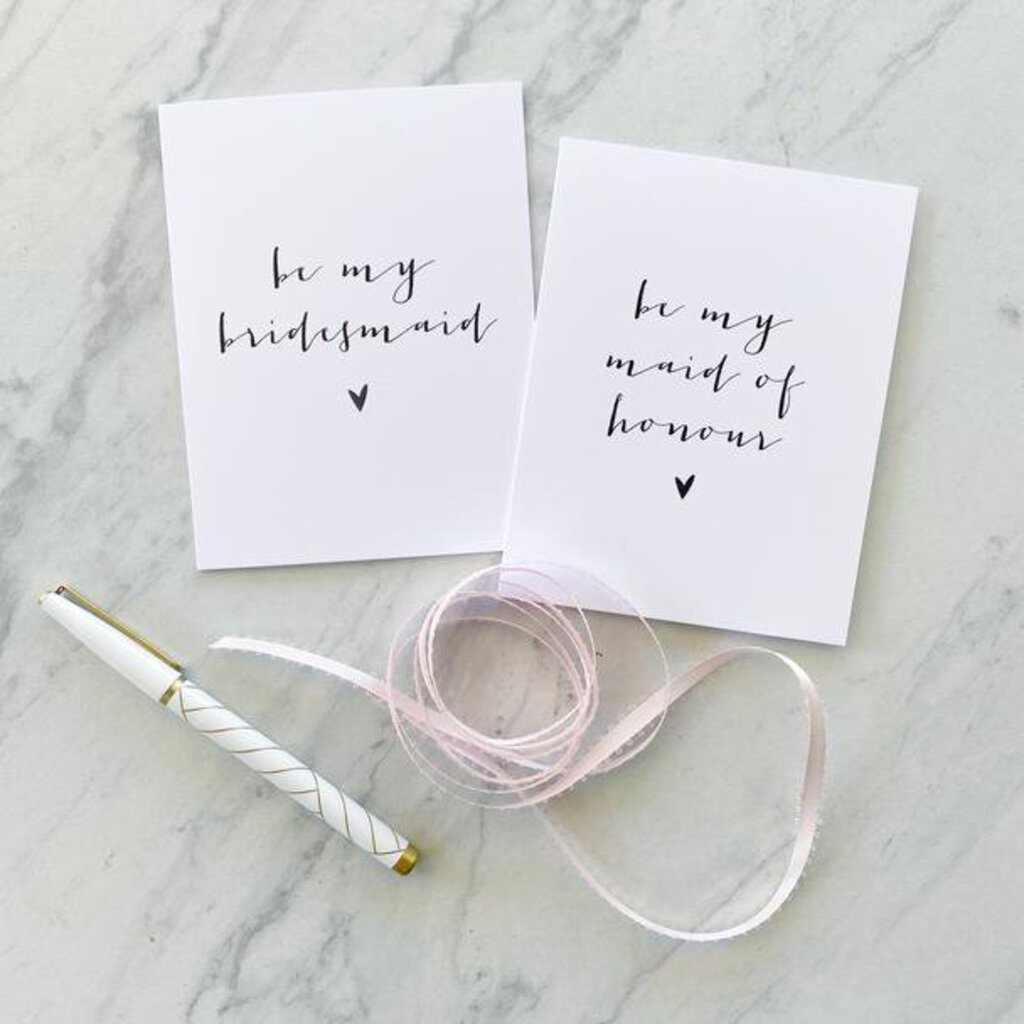 be my
bridesmaid
be my
maid of
honour